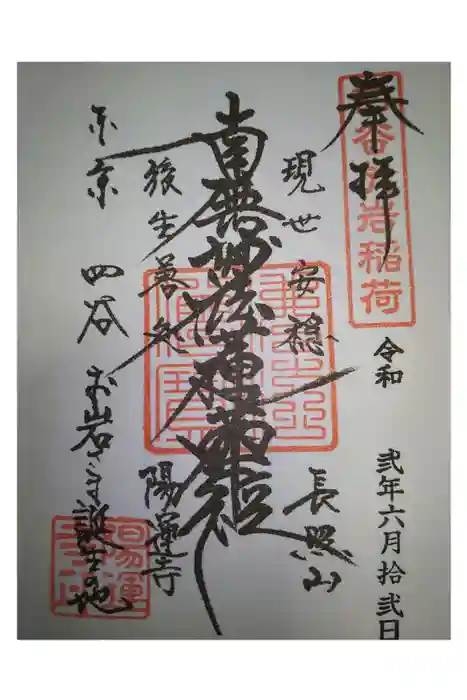 奉拝
四谷お岩稲荷
令和 弐年六月拾弐日
現世安穏 長照山
南無妙法蓮華経
後生善処 陽運寺
東京 四谷 お岩さま誕生の地
陽運